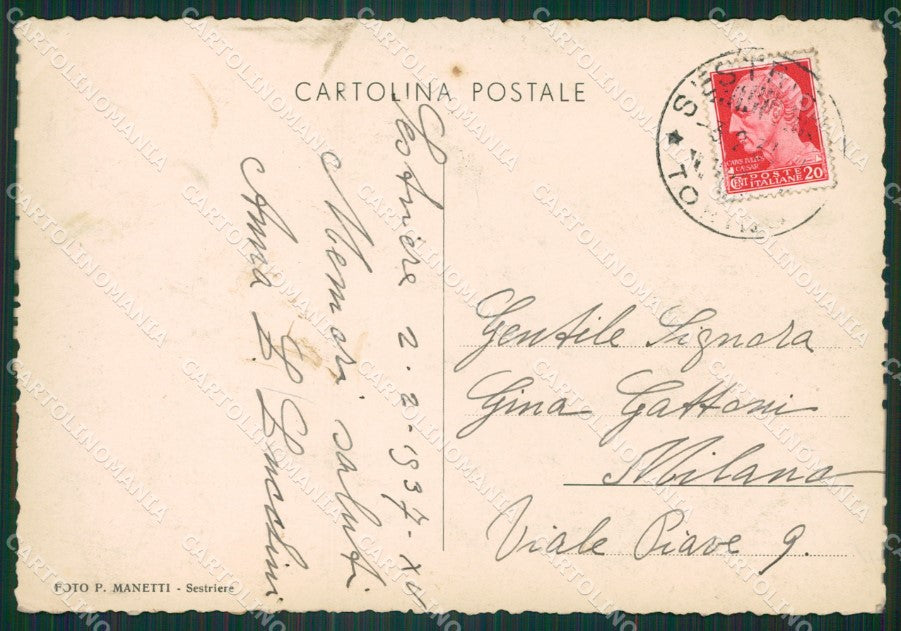 CARTOLINA POSTALE
Sestriere 2.2.1937-XV
Memori saluti
Anna
Gentile Signora
Gina Gattoni
Milano
Viale Piave 9.
CAIVS IVLIVS
CAESAR
CENT POSTE
ITALIANE 20
FOTO P. MANETTI - Sestriere
CARTOLINOMANIA